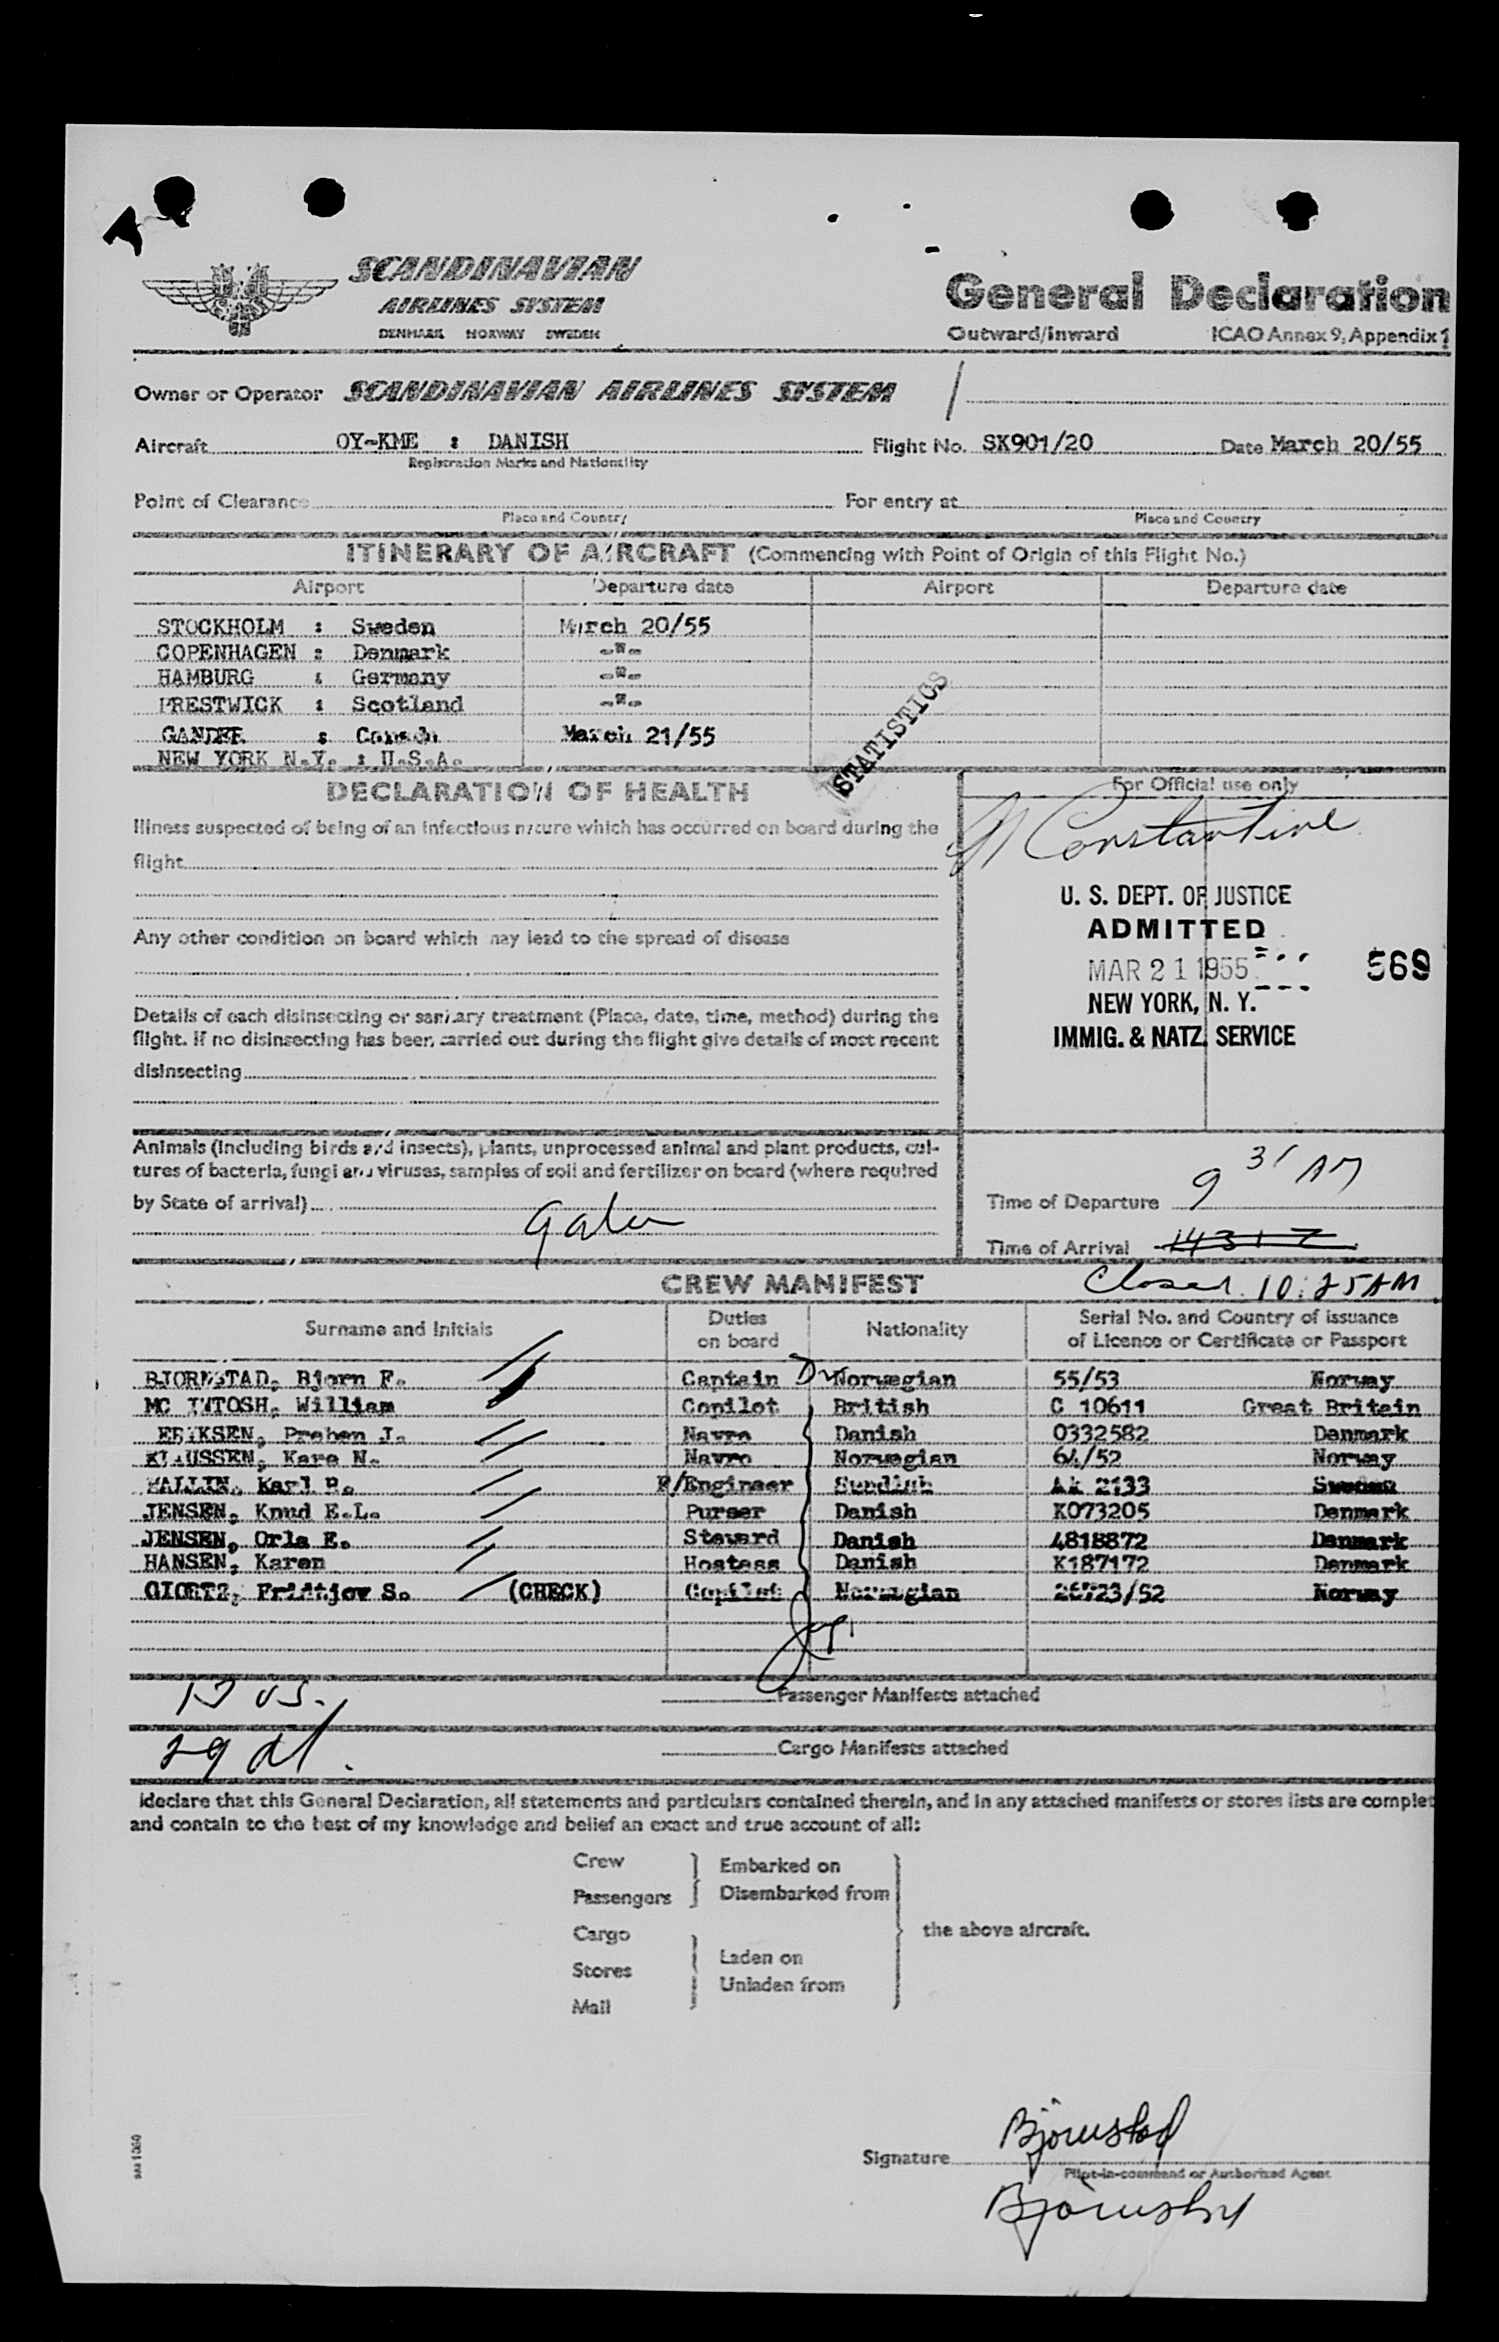 SCANDINAVIAN
AIRLINES SYSTEM
DENMARK NORWAY SWEDEN
General Declaration
Outward/Inward ICAO Annex 9, Appendix 1
Owner or Operator SCANDINAVIAN AIRLINES SYSTEM
Aircraft OY-KME : DANISH Flight No. SK901/20 Date March 20/55
Registration Marks and Nationality
Point of Clearance For entry at
Place and Country Place and Country
ITINERARY OF AIRCRAFT (Commencing with Point of Origin of this Flight No.)
Airport Departure date Airport Departure date
STOCKHOLM : Sweden March 20/55
COPENHAGEN : Denmark -"-
HAMBURG : Germany -"-
PRESTWICK : Scotland -"-
GANDER : Canada March 21/55
NEW YORK N.Y. : U.S.A.
STATISTICS
DECLARATION OF HEALTH
For Official use only
Illness suspected of being of an infectious nature which has occurred on board during the
flight
Constantine
U. S. DEPT. OF JUSTICE
ADMITTED
MAR 21 1955
569
NEW YORK, N. Y.
IMMIG. & NATZ. SERVICE
Any other condition on board which may lead to the spread of disease
Details of each disinsecting or sanitary treatment (Place, date, time, method) during the
flight. If no disinsecting has been carried out during the flight give details of most recent
disinsecting
Animals (including birds and insects), plants, unprocessed animal and plant products, cul-
tures of bacteria, fungi and viruses, samples of soil and fertilizer on board (where required
by State of arrival)
Time of Departure 9 31 AM
Time of Arrival 1431 Z
CREW MANIFEST
Closed 10:25 AM
Surname and Initials Duties on board Nationality Serial No. and Country of issuance of Licence or Certificate or Passport
BJORNSTAD, Bjorn F. Captain Norwegian 55/53 Norway
MC INTOSH, William Copilot British C 10611 Great Britain
ERIKSEN, Preben J. Navro Danish 0332582 Denmark
KLAUSSEN, Kare N. Navro Norwegian 64/52 Norway
WALLIN, Karl P. F/Engineer Swedish AK 2133 Sweden
JENSEN, Knud E.L. Purser Danish K073205 Denmark
JENSEN, Orla E. Steward Danish 4818872 Denmark
HANSEN, Karen Hostess Danish K187172 Denmark
GIORTZ, Fridtjov S. (CHECK) Copilot Norwegian 26723/52 Norway
Passenger Manifests attached
Cargo Manifests attached
I declare that this General Declaration, all statements and particulars contained therein, and in any attached manifests or stores lists are complet
and contain to the best of my knowledge and belief an exact and true account of all:
Crew
Passengers
Embarked on
Disembarked from
Cargo
Stores
Mail
Laden on
Unladen from
the above aircraft.
Signature Bjornstad
Pilot-in-command or Authorized Agent
Bjornstad